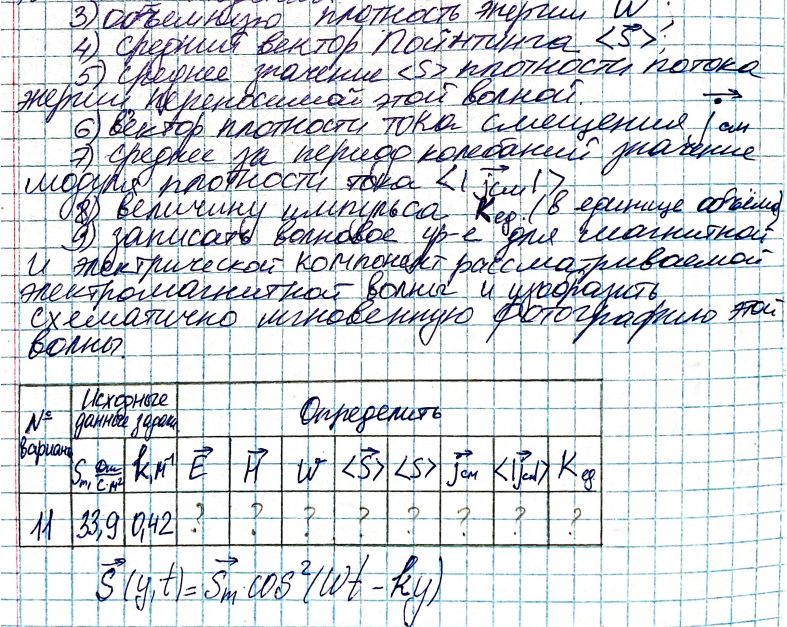 3) объёмную плотность энергии W.
4) средний вектор Пойнтинга <S⃗>;
5) среднее значение <S> плотности потока
энергии, переносимой этой волной.
6) вектор плотности тока смещения j⃗см
7) среднее за период колебаний значение
модуля плотности тока <|j⃗см|>
8) величину импульса Kед. (в единице объёма)
9) записать волновое ур-е для магнитной
и электрической компонент рассматриваемой
электромагнитной волны и изобразить
схематично мгновенную фотографию этой
волны.
№ вариант Исходные данные задачи Определить
Sm, Дж/с·м² k, м⁻¹ E⃗ H⃗ W <S⃗> <S> j⃗см <|j⃗см|> Kед
11 33,9 0,42 ? ? ? ? ? ? ? ?
S⃗(y,t)=S⃗m·cos²(Wt-ky)